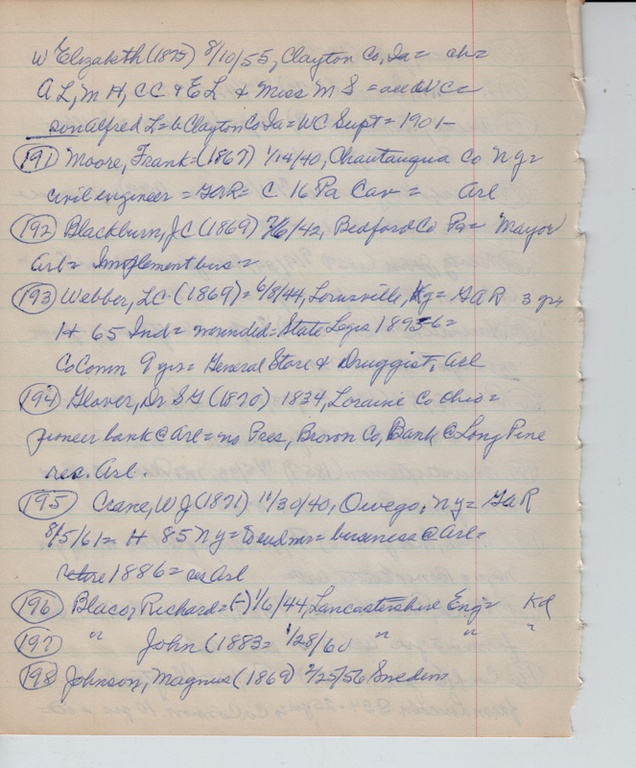 W Elizabeth (1875) 8/10/55, Clayton Co, Ia = ch =
A L, M H, C C & E L & Miss M S = all WC =
son Alfred L = b Clayton Co Ia = WC Supt = 1901 -
191 Moore, Frank = (1867) 1/14/40, Chautauqua Co NY =
civil engineer = GAR = C 16 Pa Cav = Arl
192 Blackburn, J C (1869) 7/6/42, Bedford Co Pa = Mayor
Arl = Implement bus =
193 Webber, L C (1869) = 6/8/44, Louisville, Ky = GAR 3 yrs
H 65 Ind = wounded = State Legis 1895-6 =
Co Comm 9 yrs = General Store & Druggist, Arl
194 Glover, Dr S G (1870) 1834, Loraine Co Ohio =
pioneer bank @ Arl = no Pres, Brown Co, Bank @ Long Pine
res. Arl.
195 Crane, W J (1871) 11/30/40, Owego, NY = GAR
8/5/61 = H 85 NY = to end = business @ Arl =
retire 1886 = res Arl
196 Blaco, Richard = (-) 1/6/44, Lancastershire Eng = Kd
197 " John (1883 = 1/28/60 " " "
198 Johnson, Magnus (1869) 2/25/56 Sweden